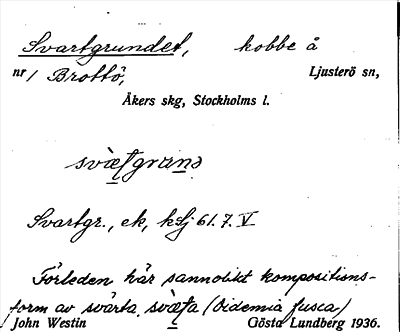 Svartgrundet, kobbe å
nr 1 Brottö, Ljusterö sn,
Åkers skg, Stockholms l.
Svartgr., ek, kSj 61. 7. V
Förleden här sannolikt kompositions-
form av svärta, (Oidemia fusca)
John Westin Gösta Lundberg 1936.